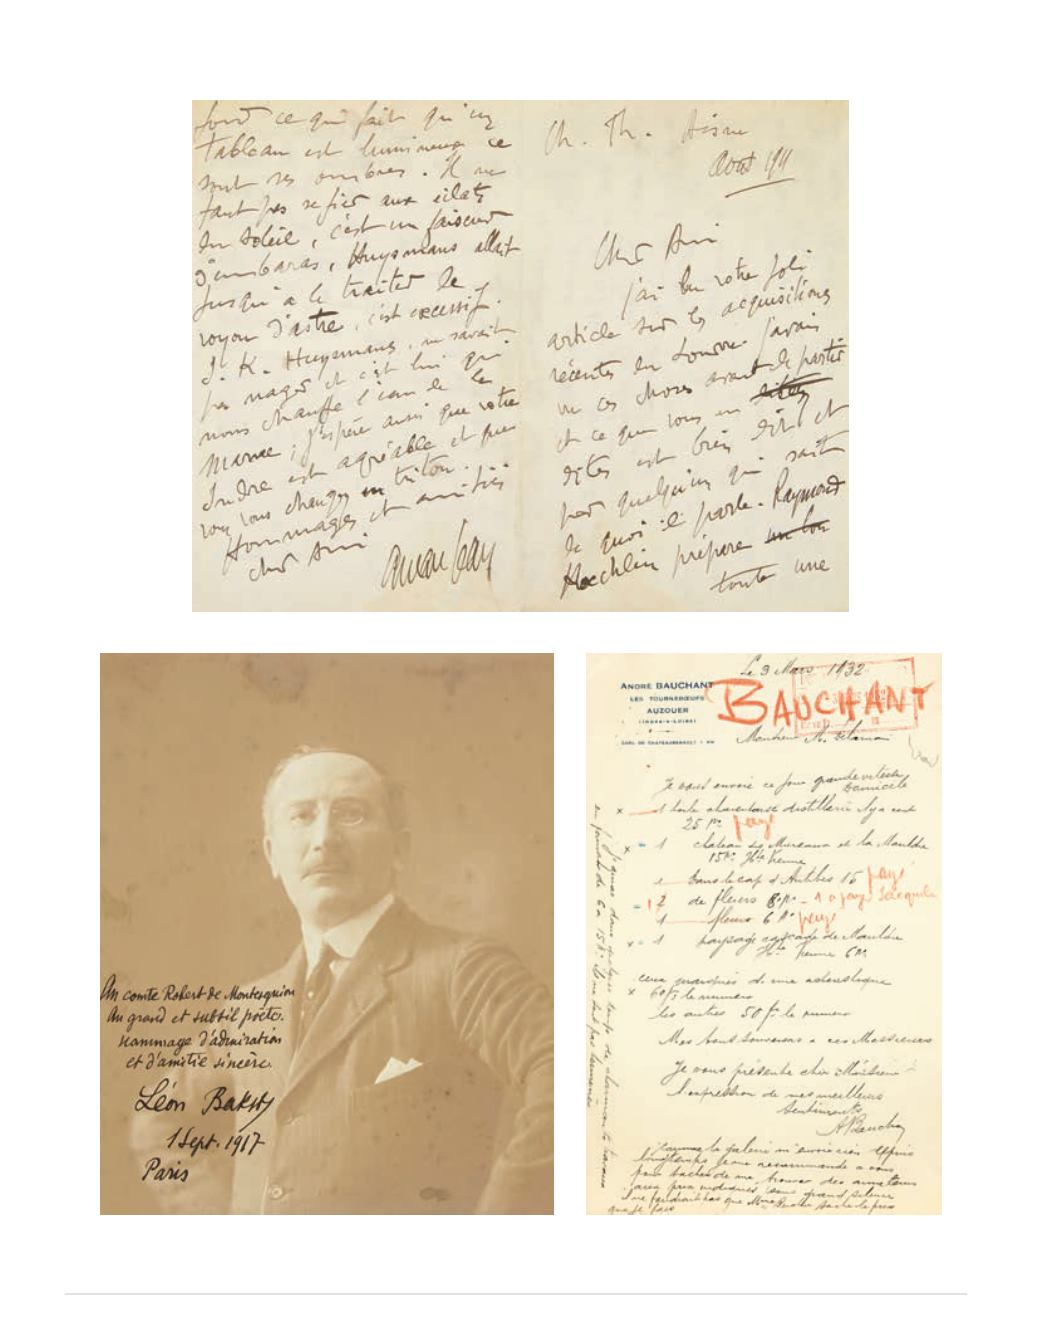 fond ce qui fait qu'un
tableau est lumineux ce
sont ses ombres. Il ne
faut pas se fier aux éclats
du soleil, c'est un faiseur
d'embaras, Huysmans allait
jusqu'à le traiter de
voyou d'astre, c'est excessif.
J. K. Huysmans, ne savait
pas nager et c'est lui qui
nous chauffe l'eau de la
Marne; j'espère aussi que votre
Indre est agréable et que
vous vous changez en triton.
Hommages et amitiés
cher Ami
Aman Jean
Ch. Th. Aisne
Août 1911
Cher Ami
j'ai lu votre joli
article sur les acquisitions
récentes du Louvre. J'avais
vu ces choses avant de partir
et ce que vous en dites
dites est bien dit et
par quelqu'un qui sait
de quoi il parle. Raymond
Koechlin prépare
toute une
Au comte Robert de Montesquiou
Au grand et subtil poète.
Hommage d'admiration
et d'amitié sincère.
Léon Bakst
1 Sept. 1917
Paris
Le 3 Mars 1932
ANDRÉ BAUCHANT
BAUCHANT
LES TOURNEBŒUFS
AUZOUER
(INDRE-&-LOIRE)
Monsieur M.
Je vous envoie ce jour grande vitesse
domicile
1 toile charentaise distillerie
25 Ps payé
1 chateau des Mureaux et la Mauldre
15 Ps
dans le cap d'Antibes 15 payé
2 de fleurs 8 Ps - 1 a payé Jacques
1 fleurs 6 Ps payé
1 paysage de Mauldre
6 Ps
ceux marqués d'une astérisque
60 f le numéro
les autres 50 f le numéro
Mes bons souvenirs a ces Messieurs
Je vous présente cher Monsieur
l'expression de mes meilleurs
sentiments
A Bauchant